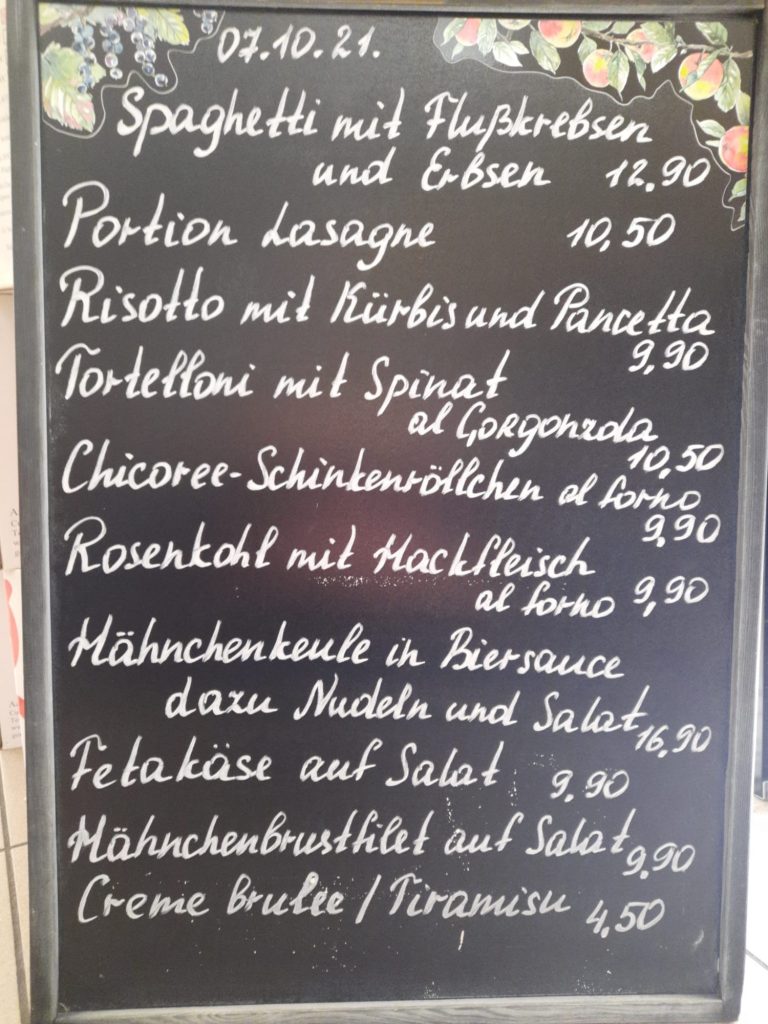 07.10.21.
Spaghetti mit Flußkrebsen
und Erbsen 12.90
Portion Lasagne 10,50
Risotto mit Kürbis und Pancetta
9,90
Tortelloni mit Spinat
al Gorgonzola
10,50
Chicoree-Schinkenröllchen al forno
9,90
Rosenkohl mit Hackfleisch
al forno 9,90
Hähnchenkeule in Biersauce
dazu Nudeln und Salat
16,90
Fetakäse auf Salat 9.90
Hähnchenbrustfilet auf Salat 9.90
Creme brulee / Tiramisu 4,50